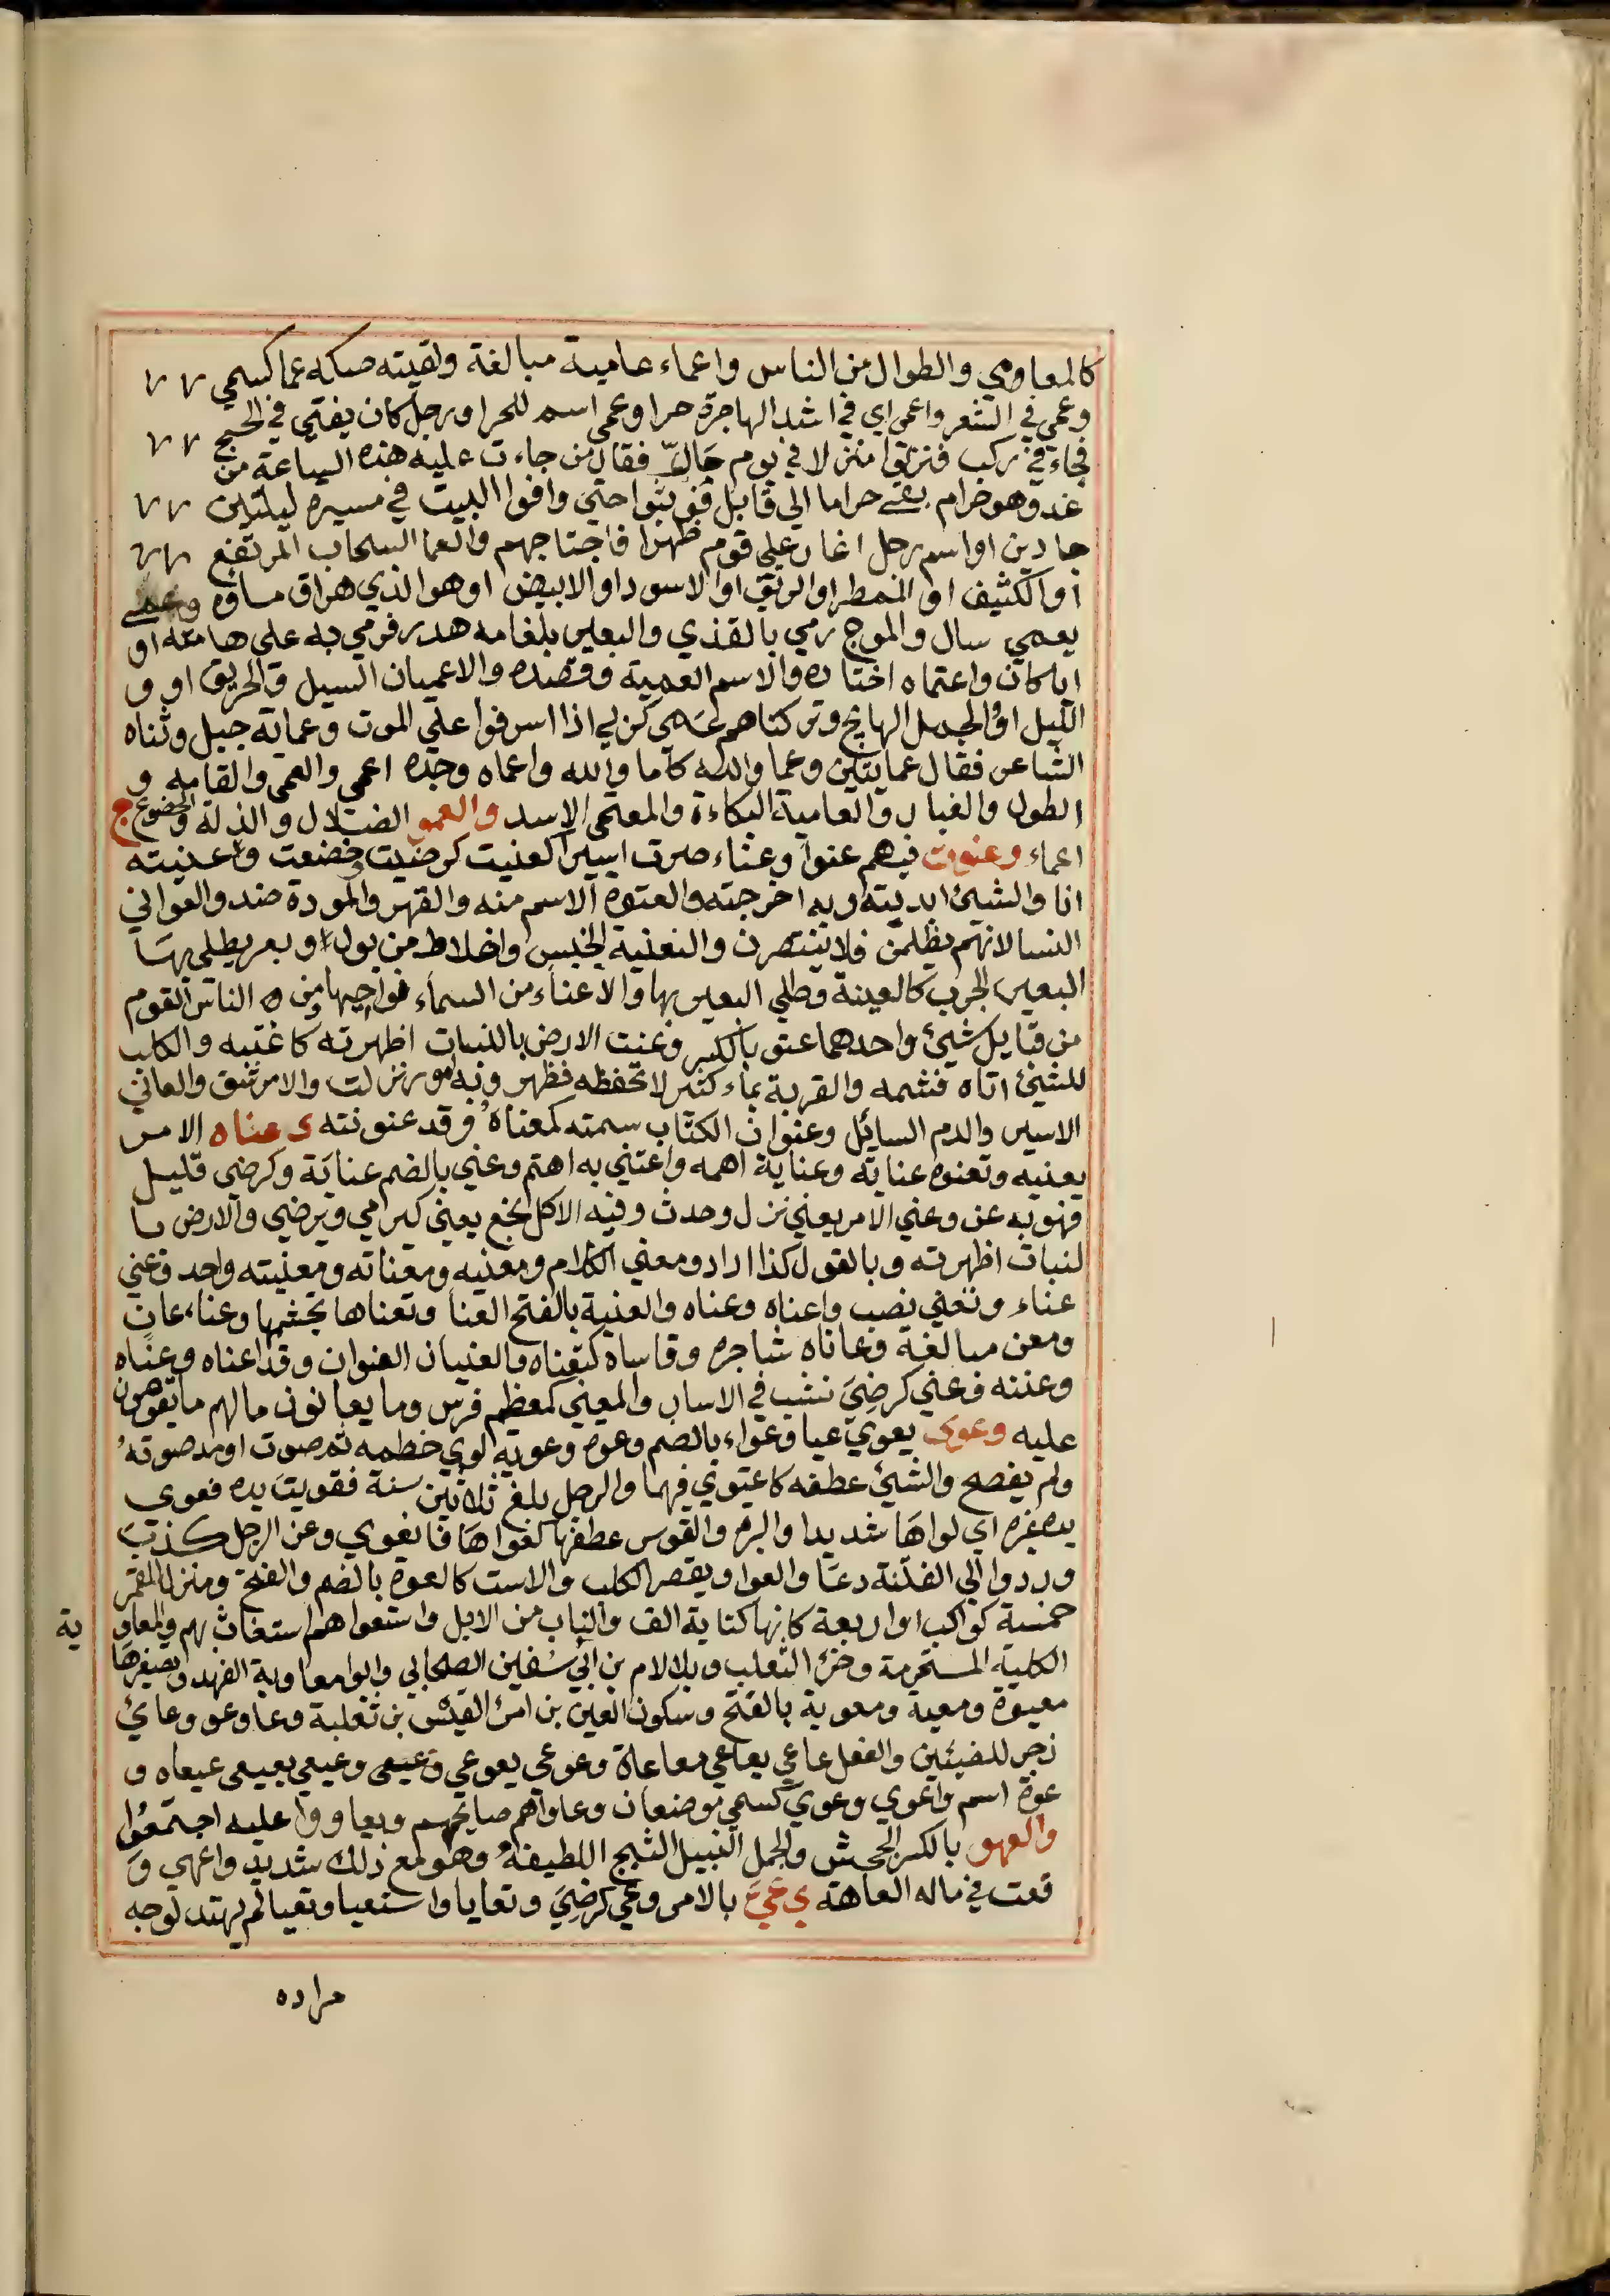 كالمعامي والطوال من الناس واعماء عامية مبالغة ولقيته صكه عما كسمي
وعمي في الشعر واعمي اي في اشد الهاجرة حرا وعمي اسم للحر او رجل كان يفتي في الحج
فجاء في ركب فنزلوا منزلا في يوم حار فقال من جاءت عليه هذه الساعة من
غد وهو حرام بقي حراما الي قابل فوثبوا حتي وافوا البيت في مسيره ليلتين
جادين او اسم رجل اغار علي قوم ظهرا فاجتاجهم والعما السحاب المرتفع
او الكثيف او الممطر او الرقيق او الاسود او الابيض او هو الذي هراق ماؤه وعمي
يعمي سال والموج رمي بالقذي والبعير بلغامه هدر فرمي به علي هامته او
ايا كان واعتماه اختاره والاسم العمية وقصده والاعميان السيل والحريق او و
الليل او الجمل الهايج وتركناهم عمي كربي اذا اسرفوا علي الموت وعماية جبل وثناه
الشاعر فقال عمايتين وعما والله كاما والله واعماه وجده اعمي والعمي والقامه و
الطول والغبار والعامية البكاءة والمعتمي الاسد والعمو الضلال والذلة والخضوع ج
اعماء وعنوت فيهم عنوا وعناء صرت اسيرا كعنيت كرضيت وخضعت واعنيته
انا والشيئ ابديته وبه اخرجته والعنوه الاسم منه والقهر والمودة ضد والعواني
النسا لانهم يظلمن فلا ينتصرن والتعنية الحبس واخلاط من بول او بعر يطلي بها
البعير الجرب كالعينة وطلي البعير بها والاعناء من السماء نواحيها ومن ه الناس القوم
من قبايل شيئ واحدهما عنو بالكسر وعنت الارض بالنبات اظهرته كاعنته والكلب
للشيئ اتاه فشمه والقربة بماء كثير لا تحفظه فظهر وبه امور نزلت والامر شق والعاني
الاسير والدم السائل وعنوان الكتاب سمته كمعناه وقد عنونته ي عناه الامر
يعنيه وتعنوه عناية وعناية اهمه واعتني به اهتم وعني بالضم عناية وكرضي قليل
فهو به عن وعني الامر يعني نزل وحدث وفيه الاكل نجع يعني كيرمي ويرضي والارض با
لنبات اظهرته وبالقول كذا اراد ومعني الكلام ومعنيه ومعناته ومعنيته واحد وعني
عناء وتعني نصب واعناه وعناه والعنية بالفتح العنا وتعناها تجشمها وعناء عان
ومعن مبالغة وعاناه شاجره وقاساه كتعناه والعنيان العنوان وقد اعناه وعناه
وعننه وعني كرضي نشب في الاسار والمعني كمعظم فرس وما يعانون مالهم ما يقومون
عليه وعوي يعوي عيا وعواء بالضم وعوه وعوية لوي خطمه ثم صوت او مد صوته
ولم يفصح والشيئ عطفه كاعتوي فيهما والرجل بلغ ثلاثين سنة فقويت يده فعوي
يد غيره اي لواها شديدا والبره والقوس عطفها كعواها فانعوي وعن الرجل كذب
وردوا الي الفتنة دعا والعوا ويقصر الكلب والاست كالعوة بالضم والفتح ومنزل القمر
خمسة كواكب او اربعة كانها كتابة الف والناب من الابل واستعواهم استغاث بهم والمعاو
ية
الكلبة المستحرمة وجرو الثعلب وبلا لام بن ابي سفين الصحابي وابو معاوية الفهد وتصغيرها
معيوة ومعية ومعوية بالفتح وسكون العين بن امرئ القيس بن ثعلبة وعا وعو وعائ
زجر للضيئين والفعل عاعي يعاعي معاعاة وعوعي يعوعي وعيعي وعيعي يعيعي عيعاه و
عوة اسم واعوي وعوي كسمي موضعان وعاواهم صايحهم وتعاووا عليه اجتمعوا
والعهو بالكسر الجحش والجمل النبيل الثبج اللطيفه وهو مع ذلك شديد واعهي و
قعت في ماله العاهة ي عيي بالامر وعي كرضي وتعايا واستعيا وتعيا لم يهتد لوجه
مراده